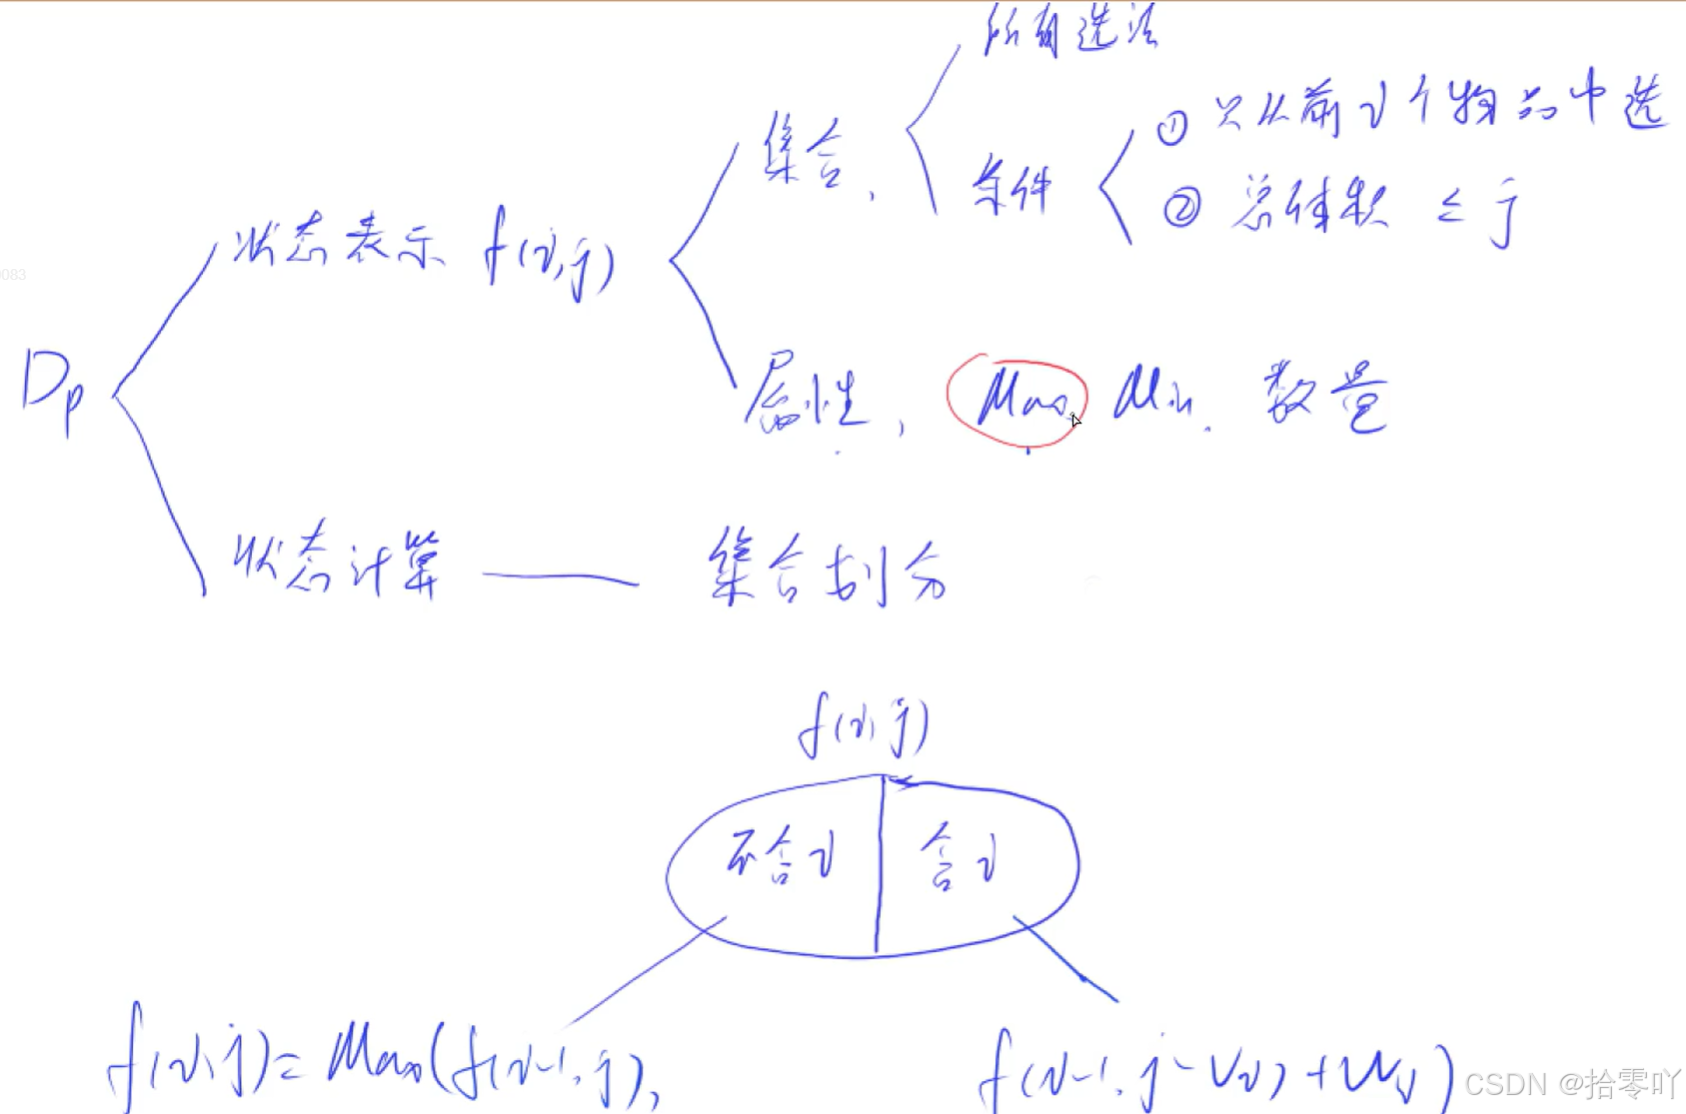 所有选法
① 只从前i个物品中选
集合,
条件
② 总体积 ≤ j
状态表示 f(i,j)
0083
Dp
属性, Max, Min, 数量
状态计算 —— 集合划分
f(i,j)
不含i 含i
f(i,j)= Max(f(i-1,j), f(i-1,j-Vi)+Wi)
CSDN @拾零吖